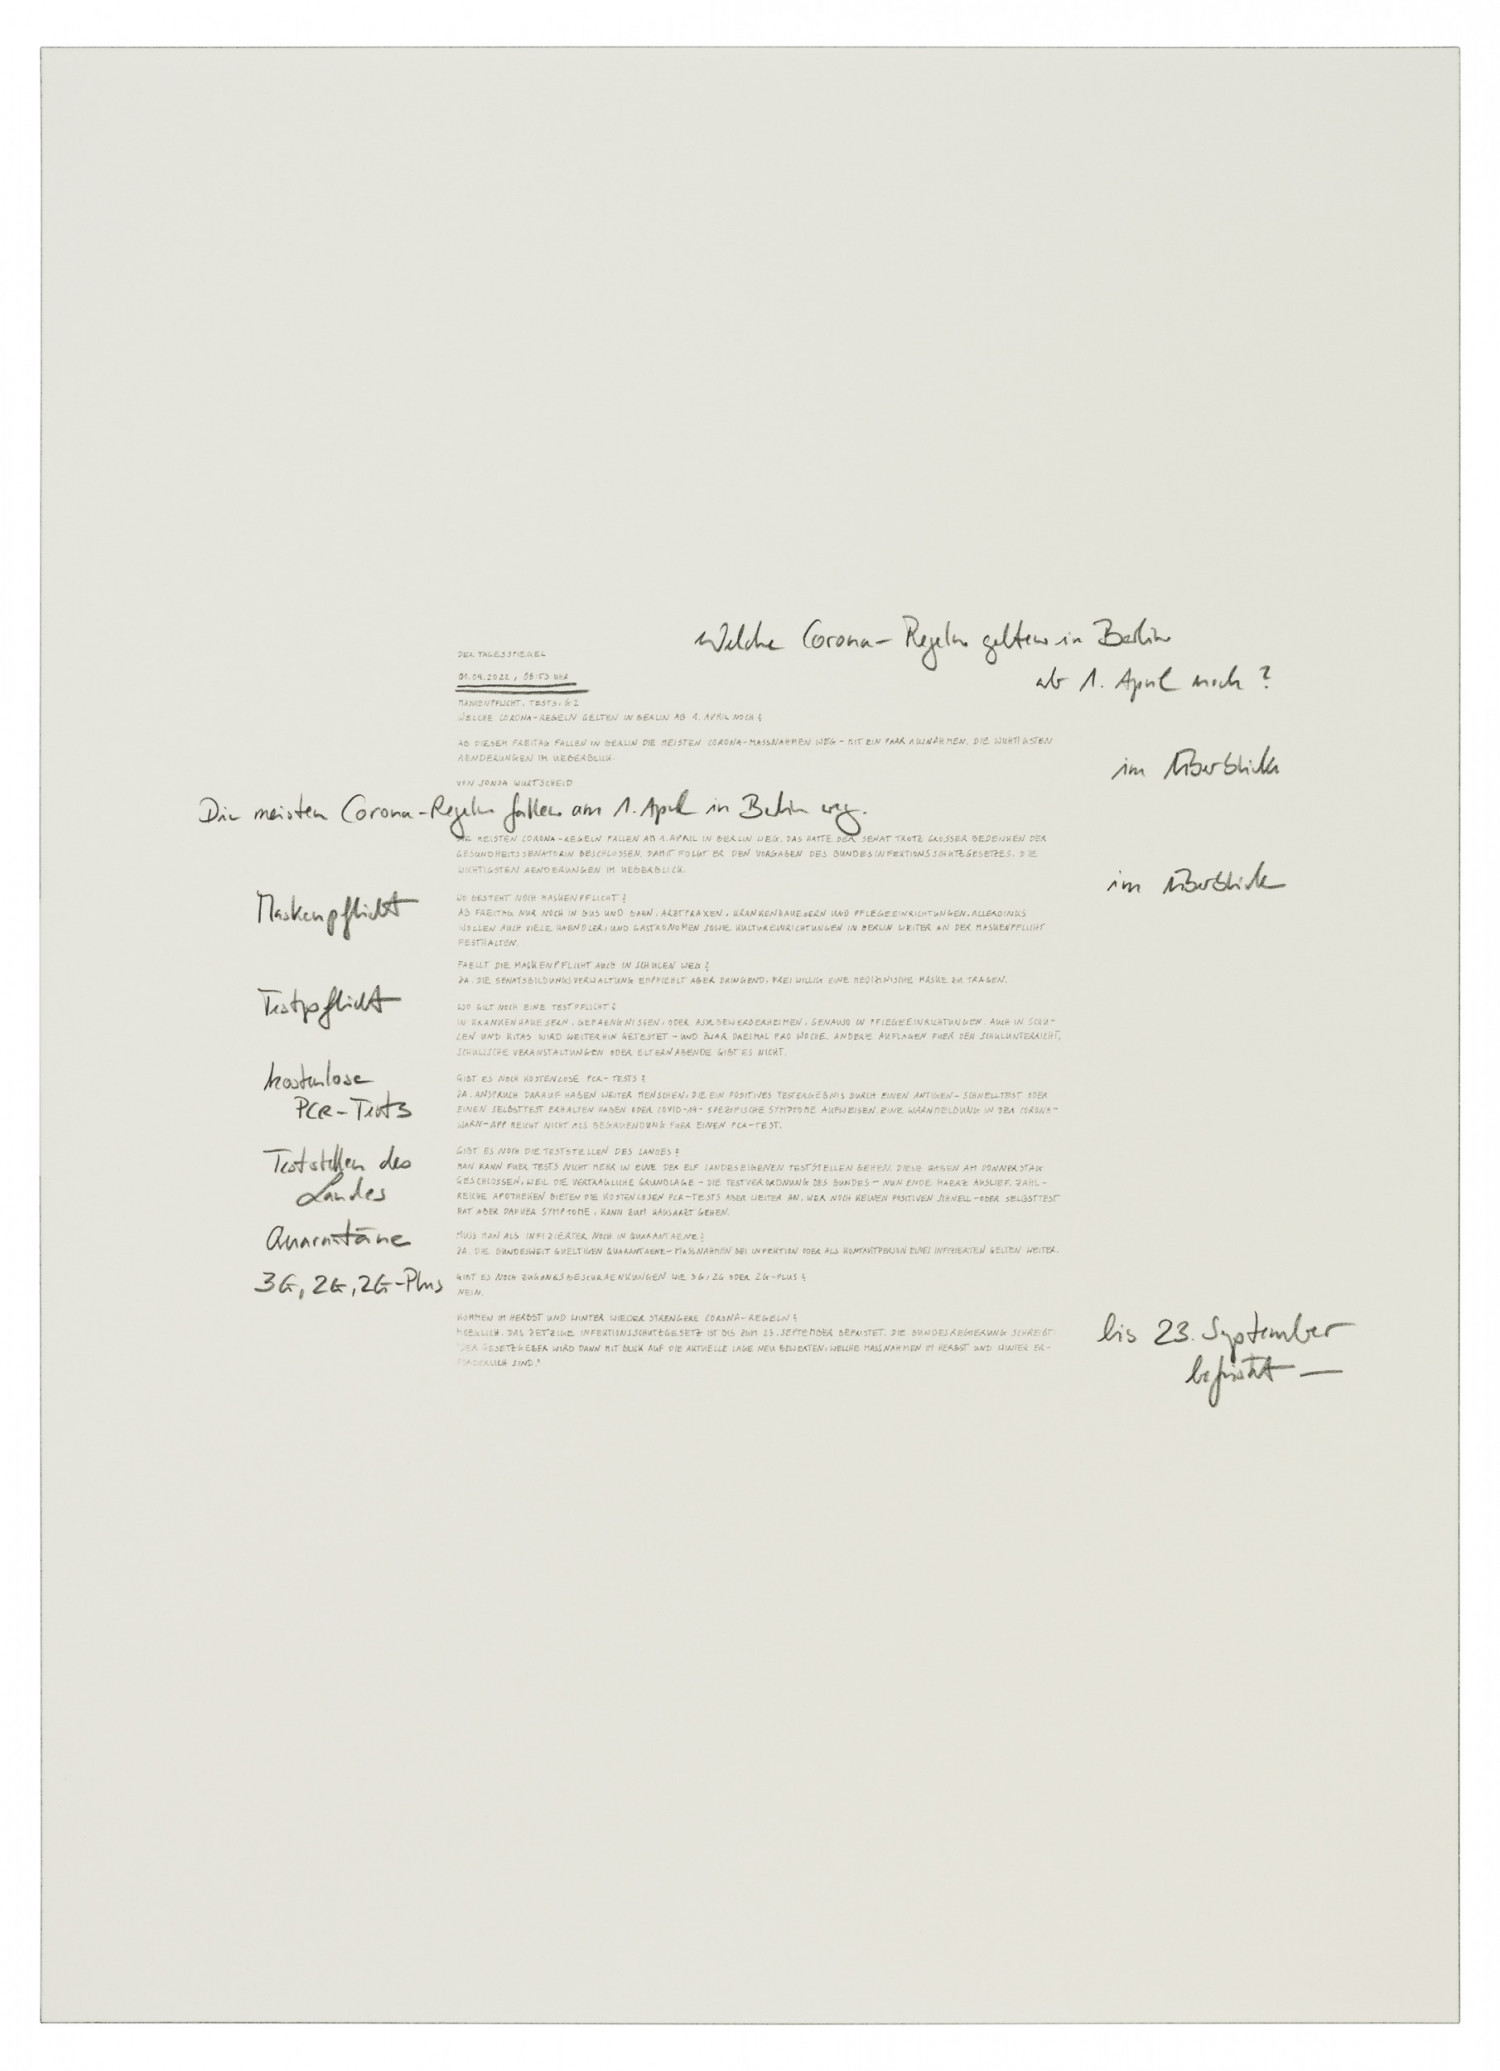 Welche Corona-Regeln gelten in Berlin
DER TAGESSPIEGEL
ab 1. April noch?
01.04.2022, 08:53 UHR
MASKENPFLICHT, TESTS, G2
WELCHE CORONA-REGELN GELTEN IN BERLIN AB 1. APRIL NOCH?
AB DIESEM FREITAG FALLEN IN BERLIN DIE MEISTEN CORONA-MASSNAHMEN WEG – MIT EIN PAAR AUSNAHMEN. DIE WICHTIGSTEN
AENDERUNGEN IM UEBERBLICK.
im Überblick
VON SONJA WURTSCHEID
Die meisten Corona-Regeln fallen am 1. April in Berlin weg.
DIE MEISTEN CORONA-REGELN FALLEN AB 1. APRIL IN BERLIN WEG. DAS HATTE DER SENAT TROTZ GROSSER BEDENKEN DER
GESUNDHEITSSENATORIN BESCHLOSSEN. DAMIT FOLGT ER DEN VORGABEN DES BUNDESINFEKTIONSSCHUTZGESETZES. DIE
WICHTIGSTEN AENDERUNGEN IM UEBERBLICK.
im Überblick
Maskenpflicht
WO BESTEHT NOCH MASKENPFLICHT?
AB FREITAG NUR NOCH IN BUS UND BAHN, ARZTPRAXEN, KRANKENHAUESERN UND PFLEGEEINRICHTUNGEN. ALLERDINGS
WOLLEN AUCH VIELE HAENDLER, UND GASTRONOMEN SOWIE KULTUREINRICHTUNGEN IN BERLIN WEITER AN DER MASKENPFLICHT
FESTHALTEN.
FAELLT DIE MASKENPFLICHT AUCH IN SCHULEN WEG?
JA. DIE SENATSBILDUNGSVERWALTUNG EMPFIEHLT ABER DRINGEND, FREIWILLIG EINE MEDIZINISCHE MASKE ZU TRAGEN.
Testpflicht
WO GILT NOCH EINE TESTPFLICHT?
IN KRANKENHAUESERN, GEFAENGNISSEN, ODER ASYLBEWERBERHEIMEN, GENAUSO IN PFLEGEEINRICHTUNGEN. AUCH IN SCHU-
LEN UND KITAS WIRD WEITERHIN GETESTET – UND ZWAR DREIMAL PRO WOCHE. ANDERE AUFLAGEN FUER DEN SCHULUNTERRICHT,
SCHULISCHE VERANSTALTUNGEN ODER ELTERNABENDE GIBT ES NICHT.
kostenlose
PCR-Tests
GIBT ES NOCH KOSTENLOSE PCR-TESTS?
JA. ANSPRUCH DARAUF HABEN WEITER MENSCHEN, DIE EIN POSITIVES TESTERGEBNIS DURCH EINEN ANTIGEN-SCHNELLTEST ODER
EINEN SELBSTTEST ERHALTEN HABEN ODER COVID-19-SPEZIFISCHE SYMPTOME AUFWEISEN. EINE WARNMELDUNG IN DER CORONA-
WARN-APP REICHT NICHT ALS BEGRUENDUNG FUER EINEN PCR-TEST.
Teststellen des
Landes
GIBT ES NOCH DIE TESTSTELLEN DES LANDES?
MAN KANN FUER TESTS NICHT MEHR IN EINE DER ELF LANDESEIGENEN TESTSTELLEN GEHEN. DIESE HABEN AM DONNERSTAG
GESCHLOSSEN, WEIL DIE VERTRAGLICHE GRUNDLAGE – DIE TESTVERORDNUNG DES BUNDES – NUN ENDE MAERZ AUSLIEF. ZAHL-
REICHE APOTHEKEN BIETEN DIE KOSTENLOSEN PCR-TESTS ABER WEITER AN. WER NOCH KEINEN POSITIVEN SCHNELL- ODER SELBSTTEST
HAT ABER DAFUER SYMPTOME, KANN ZUM HAUSARZT GEHEN.
Quarantäne
MUSS MAN ALS INFIZIERTER NOCH IN QUARANTAENE?
JA. DIE BUNDESWEIT GUELTIGEN QUARANTAENE-MASSNAHMEN BEI INFEKTION ODER ALS KONTAKTPERSON EINES INFIZIERTEN GELTEN WEITER.
3G, 2G, 2G-Plus
GIBT ES NOCH ZUGANGSBESCHRAENKUNGEN WIE 3G, 2G ODER 2G-PLUS?
NEIN.
KOMMEN IM HERBST UND WINTER WIEDER STRENGERE CORONA-REGELN?
MOEGLICH. DAS JETZIGE INFEKTIONSSCHUTZGESETZ IST BIS ZUM 23. SEPTEMBER BEFRISTET. DIE BUNDESREGIERUNG SCHREIBT:
"DER GESETZGEBER WIRD DANN MIT BLICK AUF DIE AKTUELLE LAGE NEU BEWERTEN, WELCHE MASSNAHMEN IM HERBST UND WINTER ER-
FORDERLICH SIND."
bis 23. September
befristet —